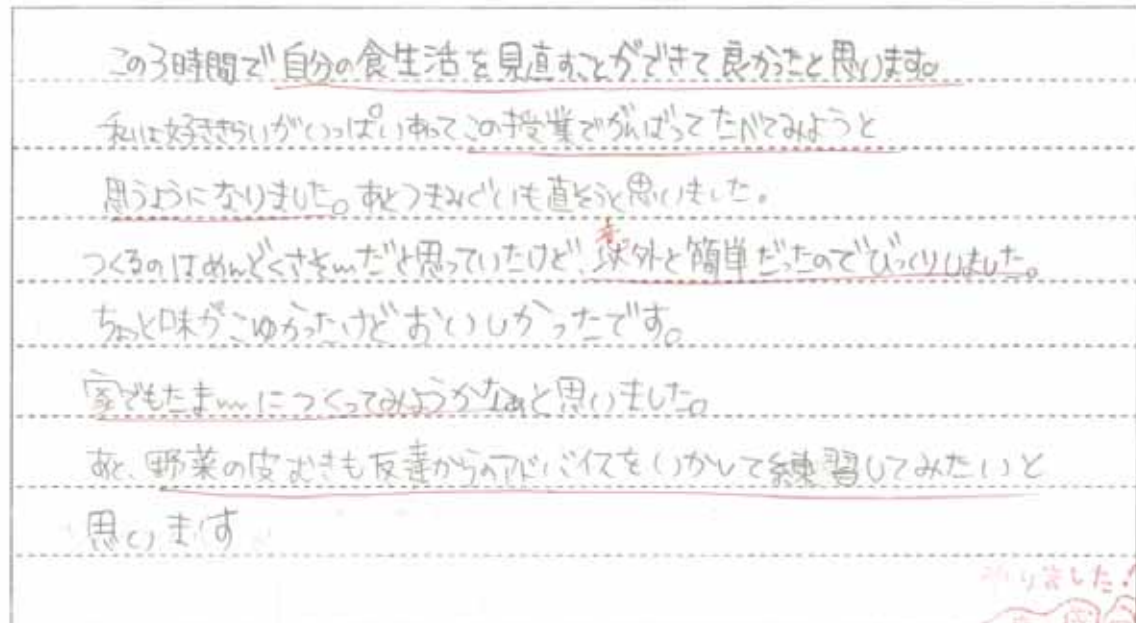 この3時間で自分の食生活を見直すことができて良かったと思います。
私は好ききらいがいっぱいあってこの授業でがんばってたべてみようと
思うようになりました。あとつまみぐいも直そうと思いました。
意
つくるのはめんどくさそ〰だと思っていたけど、以外と簡単だったのでびっくりしました。
ちょっと味がこゆかったけどおいしかったです。
家でもたま〰につくってみようかなぁと思いました。
あと、野菜の皮むきも友達からのアドバイスをいかして練習してみたいと
思います
りました!